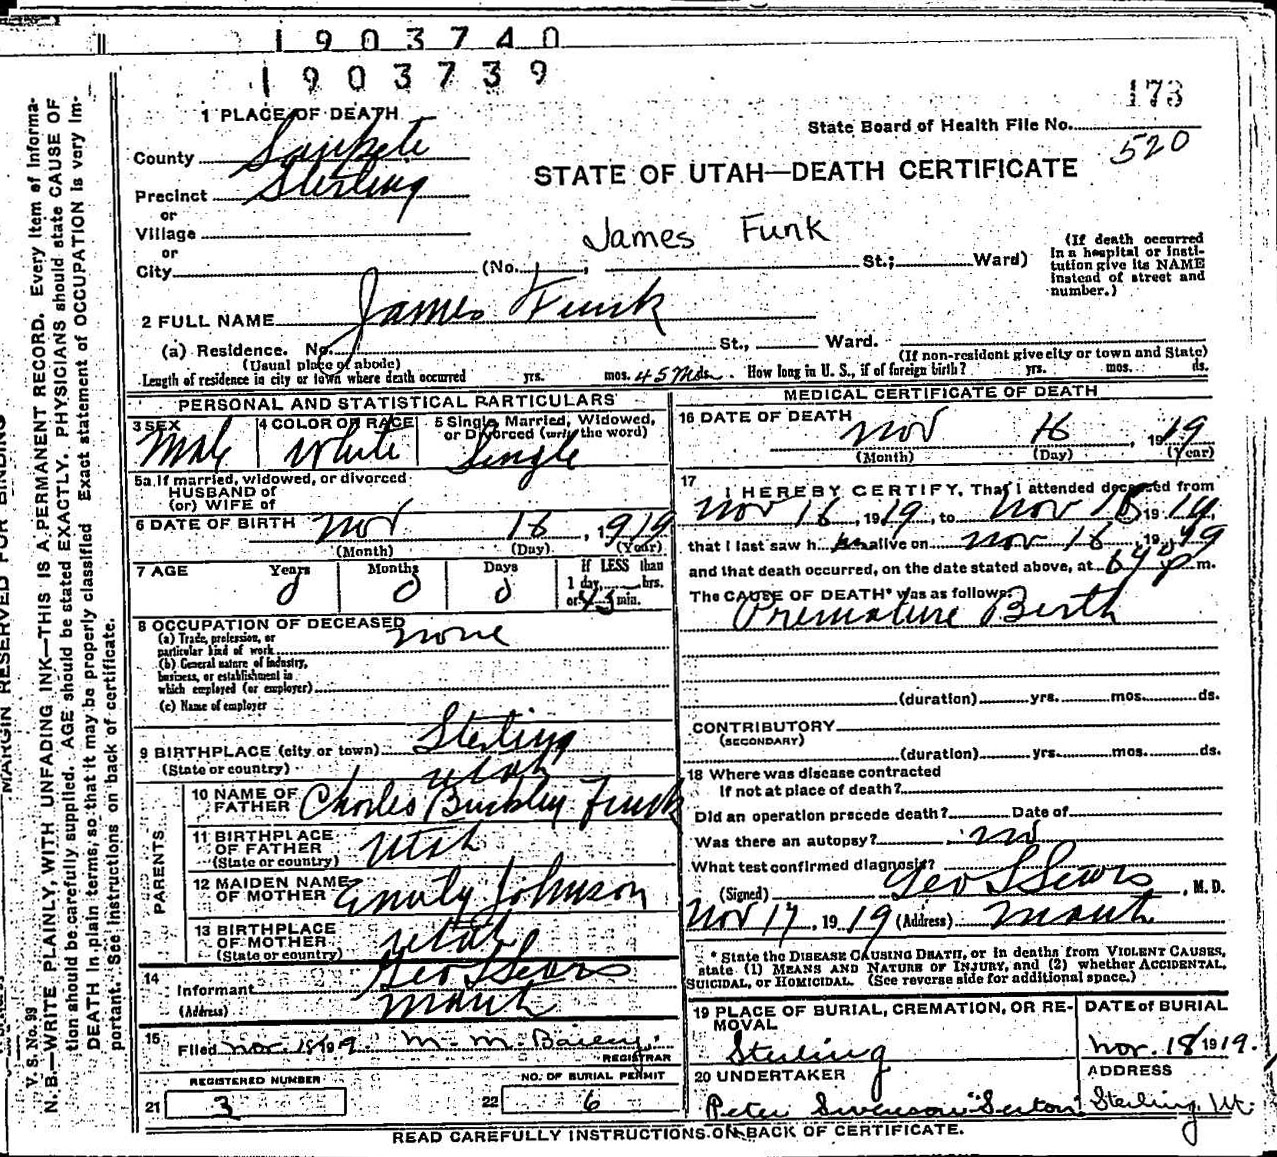 1903740
1903739
173
1 PLACE OF DEATH
State Board of Health File No.
520
County Sanpete
STATE OF UTAH—DEATH CERTIFICATE
Precinct Sterling
or
Village
James Funk
or
City (No. , St.; Ward)
(If death occurred
in a hospital or insti-
tution give its NAME
instead of street and
number.)
2 FULL NAME James Funk
(a) Residence. No. St., Ward.
(Usual place of abode) (If non-resident give city or town and State)
Length of residence in city or town where death occurred yrs. mos. 45 M ds. How long in U. S., if of foreign birth? yrs. mos. ds.
PERSONAL AND STATISTICAL PARTICULARS
3 SEX 4 COLOR OR RACE 5 Single, Married, Widowed,
or Divorced (write the word)
Male White Single
5a If married, widowed, or divorced
HUSBAND of
(or) WIFE of
6 DATE OF BIRTH Nov 16, 1919
(Month) (Day) (Year)
7 AGE Years Months Days If LESS than
1 day, hrs.
0 0 0 or 45 min.
8 OCCUPATION OF DECEASED none
(a) Trade, profession, or
particular kind of work
(b) General nature of industry,
business, or establishment in
which employed (or employer)
(c) Name of employer
9 BIRTHPLACE (city or town) Sterling
(State or country) Utah
PARENTS
10 NAME OF
FATHER Charles Buckley Funk
11 BIRTHPLACE
OF FATHER Utah
(State or country)
12 MAIDEN NAME
OF MOTHER Emily Johnson
13 BIRTHPLACE
OF MOTHER Utah
(State or country)
14
Informant Geo L Sears
(Address) Manti
15
Filed Nov. 18 1919 M. M. Bailey
REGISTRAR
REGISTERED NUMBER NO. OF BURIAL PERMIT
21 3 22 6
MEDICAL CERTIFICATE OF DEATH
16 DATE OF DEATH
Nov 16, 1919
(Month) (Day) (Year)
17
I HEREBY CERTIFY, That I attended deceased from
Nov 16, 1919, to Nov 16 1919
that I last saw h im alive on Nov 16, 1919
and that death occurred, on the date stated above, at m.
The CAUSE OF DEATH* was as follows:
Premature Birth
(duration) yrs. mos. ds.
CONTRIBUTORY
(SECONDARY)
(duration) yrs. mos. ds.
18 Where was disease contracted
if not at place of death?
Did an operation precede death? Date of
Was there an autopsy? no
What test confirmed diagnosis?
(Signed) Geo L Sears, M. D.
Nov 17, 1919 (Address) Manti
* State the DISEASE CAUSING DEATH, or in deaths from VIOLENT CAUSES,
state (1) MEANS AND NATURE OF INJURY, and (2) whether ACCIDENTAL,
SUICIDAL, or HOMICIDAL. (See reverse side for additional space.)
19 PLACE OF BURIAL, CREMATION, OR RE-
MOVAL
Sterling
DATE of BURIAL
Nov. 18 1919.
20 UNDERTAKER
Peter Swenson "Sexton"
ADDRESS
Sterling, Ut.
READ CAREFULLY INSTRUCTIONS ON BACK OF CERTIFICATE.
MARGIN RESERVED FOR BINDING
V. S. No. 99
N. B.—WRITE PLAINLY, WITH UNFADING INK—THIS IS A PERMANENT RECORD. Every item of informa-
tion should be carefully supplied. AGE should be stated EXACTLY. PHYSICIANS should state CAUSE OF
DEATH in plain terms, so that it may be properly classified. Exact statement of OCCUPATION is very im-
portant. See instructions on back of certificate.